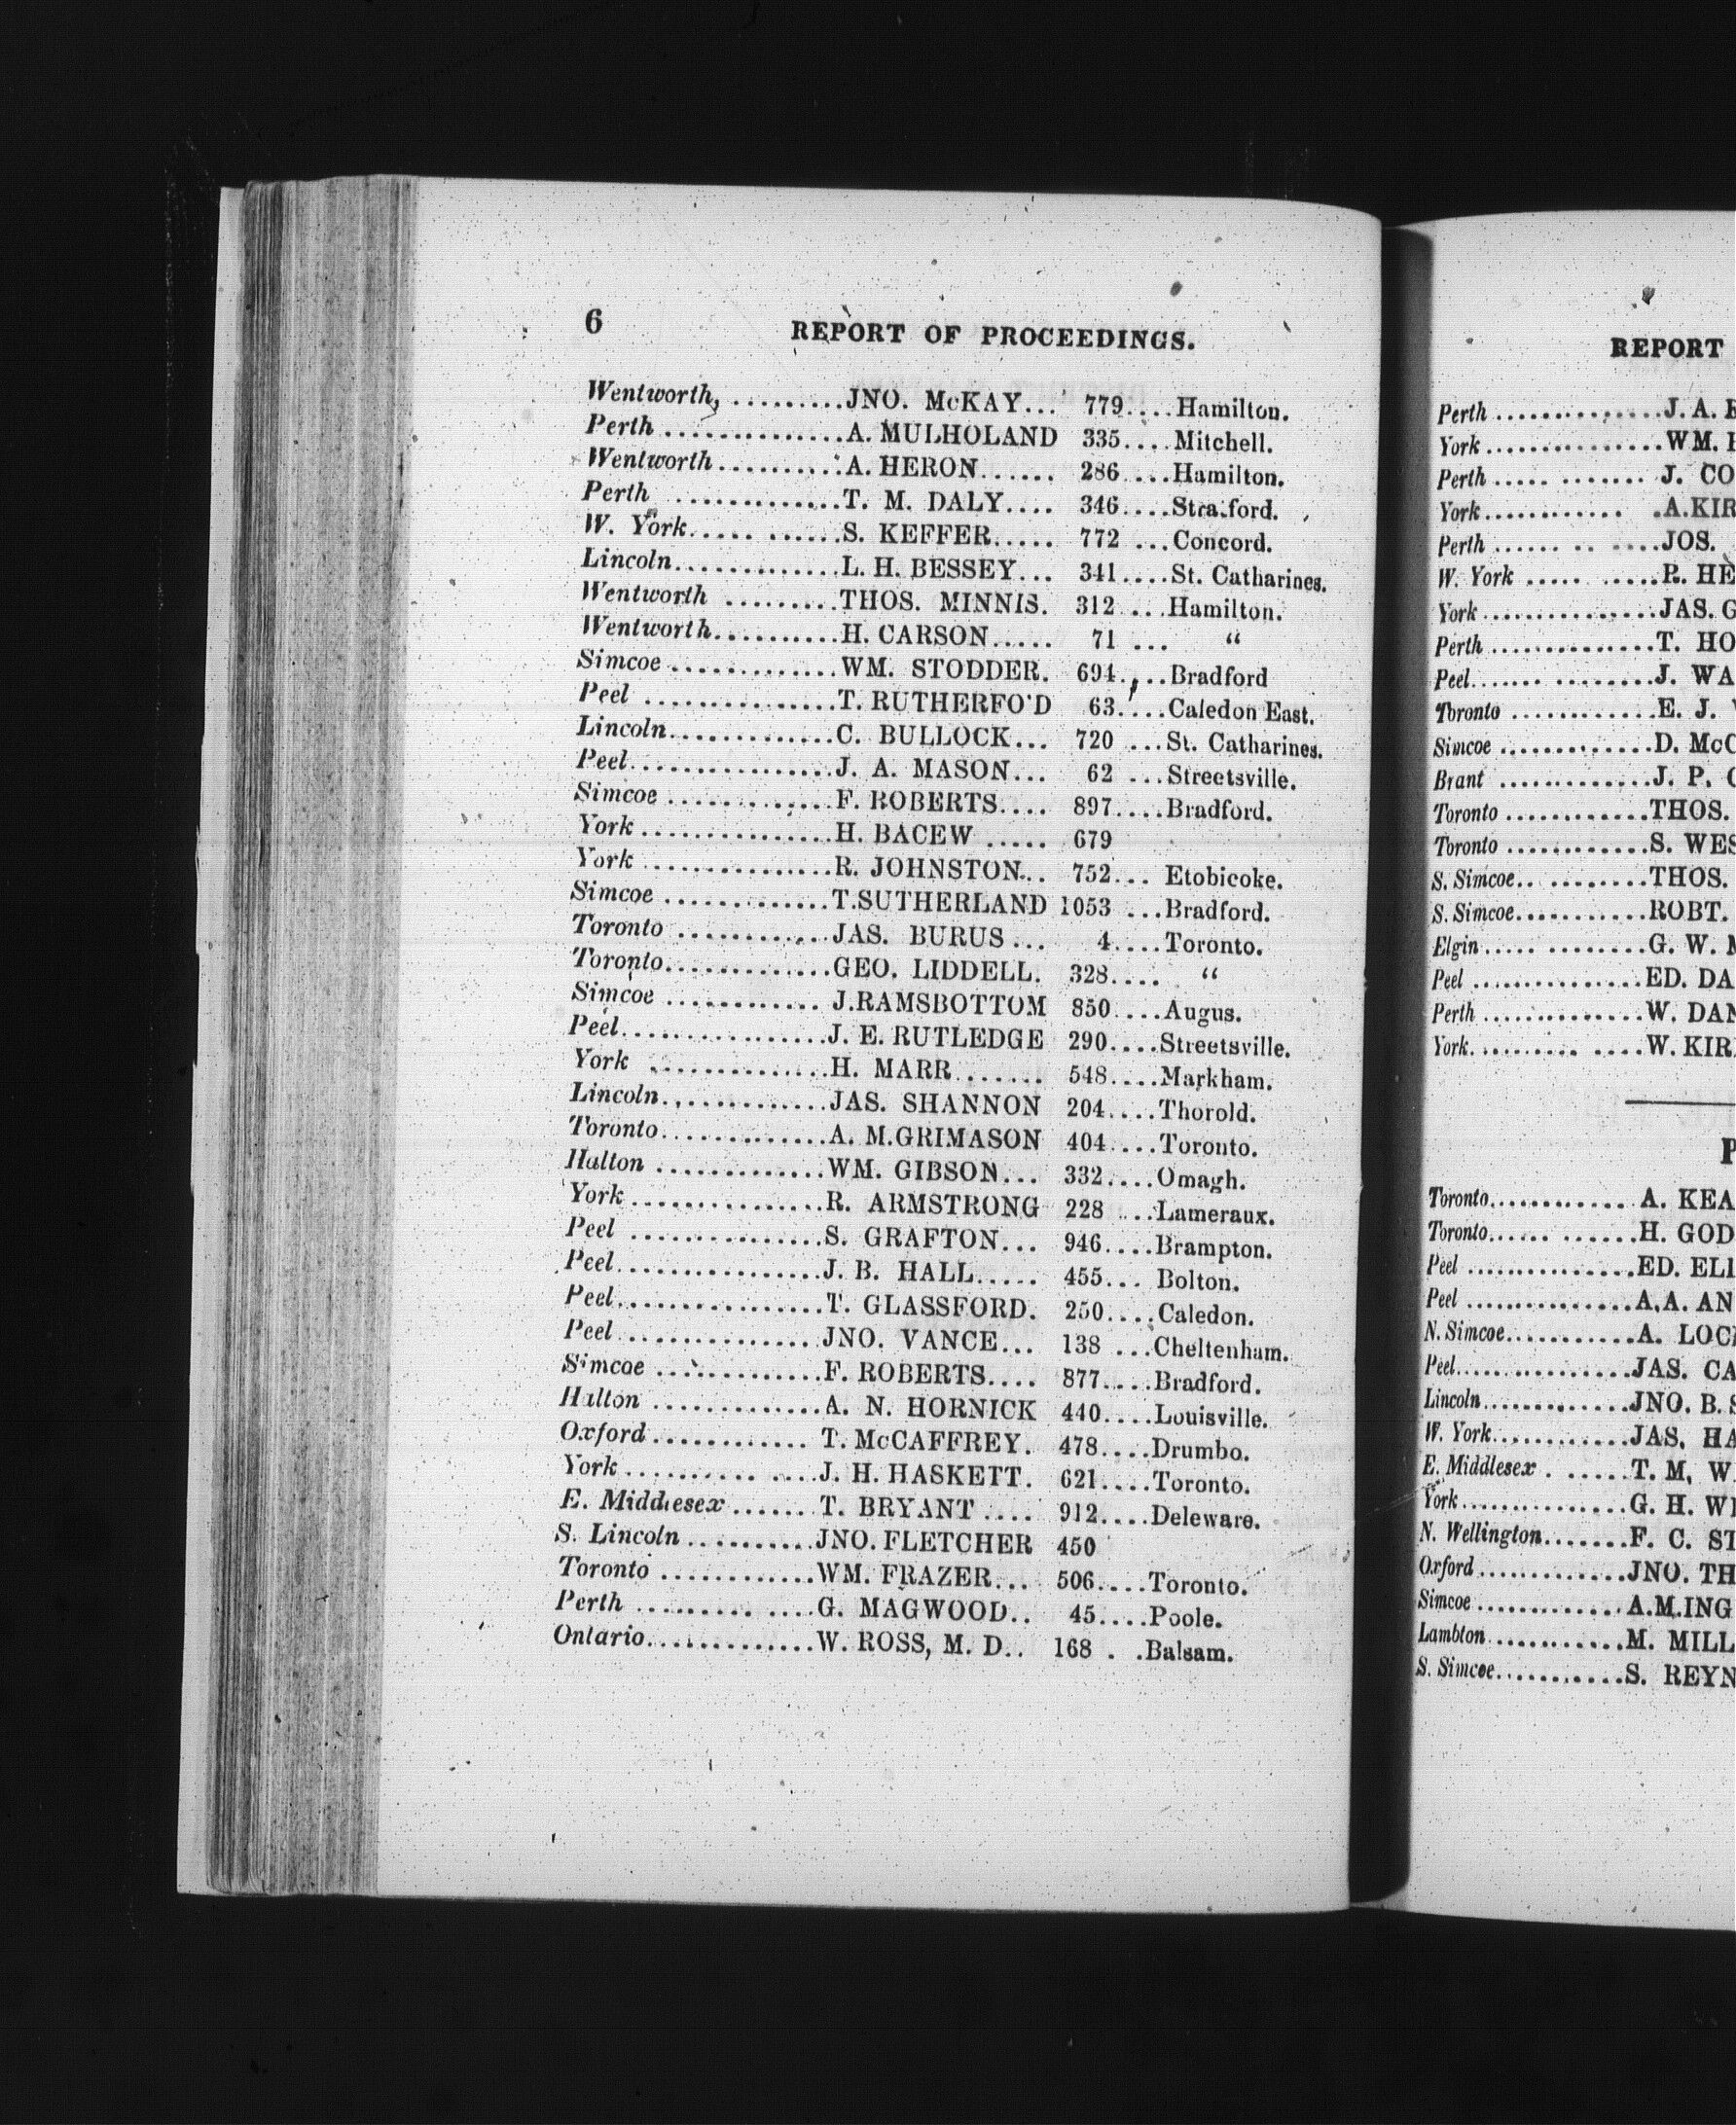 6 REPORT OF PROCEEDINGS.
Wentworth, ..........JNO. McKAY... 779....Hamilton.
Perth ...............A. MULHOLAND 335....Mitchell.
Wentworth..........A. HERON....... 286....Hamilton.
Perth ..............T. M. DALY.... 346....Stratford.
W. York..... ......S. KEFFER..... 772 ...Concord.
Lincoln.............L. H. BESSEY... 341....St. Catharines.
Wentworth .........THOS. MINNIS. 312....Hamilton.
Wentworth..........H. CARSON...... 71 ... “
Simcoe .............WM. STODDER. 694....Bradford
Peel ...............T. RUTHERFO'D 63....Caledon East.
Lincoln.............C. BULLOCK... 720 ...St. Catharines.
Peel................J. A. MASON... 62 ...Streetsville.
Simcoe .............F. ROBERTS.... 897....Bradford.
York ...............H. BACEW ..... 679
York ...............R. JOHNSTON... 752... Etobicoke.
Simcoe .............T.SUTHERLAND 1053 ...Bradford.
Toronto ............JAS. BURUS ... 4....Toronto.
Toronto.............GEO. LIDDELL. 328.... “
Simcoe ............ J.RAMSBOTTOM 850....Augus.
Peel................J. E. RUTLEDGE 290....Streetsville.
York ..............H. MARR....... 548....Markham.
Lincoln.............JAS. SHANNON 204....Thorold.
Toronto.............A. M.GRIMASON 404....Toronto.
Halton .............WM. GIBSON... 332....Omagh.
York ...............R. ARMSTRONG 228 ....Lameraux.
Peel ...............S. GRAFTON... 946....Brampton.
Peel................J. B. HALL..... 455... Bolton.
Peel................T. GLASSFORD. 250....Caledon.
Peel................JNO. VANCE... 138 ...Cheltenham.
Simcoe .............F. ROBERTS.... 877....Bradford.
Halton .............A. N. HORNICK 440....Louisville.
Oxford............ T. McCAFFREY. 478....Drumbo.
York.......... .....J. H. HASKETT. 621....Toronto.
E. Middlesex....... T. BRYANT .... 912....Deleware.
S. Lincoln ..........JNO. FLETCHER 450
Toronto ............WM. FRAZER... 506....Toronto.
Perth ......... ....G. MAGWOOD.. 45....Poole.
Ontario.............W. ROSS, M. D.. 168 . .Balsam.
REPORT
Perth ..............J. A.
York................WM.
Perth ..... ....... J. CO
York............ .A.KIR
Perth ...... .. .....JOS.
W. York ..... .....R. HE
York................JAS. G
Perth ..............T. HO
Peel....... ........J. WA
Toronto ............E. J.
Simcoe .............D. McC
Brant .............J. P.
Toronto ............THOS.
Toronto ............S. WES
S. Simcoe.. ........THOS.
S. Simcoe...........ROBT.
Elgin..... .........G. W.
Peel ...............ED. DA
Perth ..............W. DAN
York.......... .....W. KIR
P
Toronto............. A. KEA
Toronto...... ......H. GOD
Peel ...............ED. ELI
Peel ...............A.A. AN
N. Simcoe...........A. LOC
Peel................JAS. CA
Lincoln.............JNO. B.
W. York.............JAS. HA
E. Middlesex . ......T. M. W
York................G. H. W
N. Wellington.......F. C. ST
Oxford..............JNO. TH
Simcoe .............A.M.ING
Lambton............M. MILL
S. Simcoe...........S. REYN